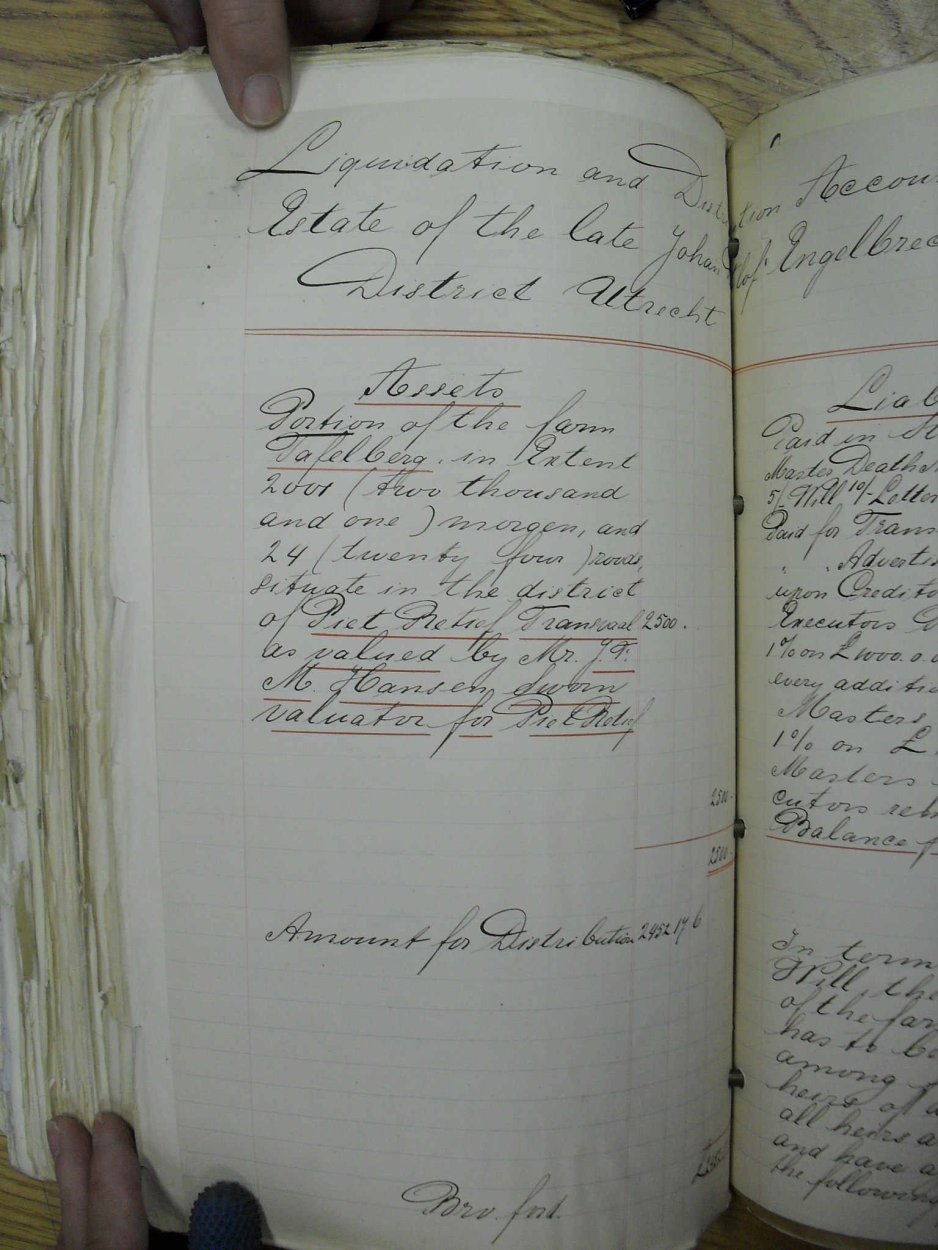 Liquidation and Dist tion Accoun
Estate of the late Johan lof Engelbrec
District Utrecht
Assets
Portion of the farm
Tafelberg, in Extent
2001 (two thousand
and one) morgen, and
24 (twenty four) roods,
situate in the district
of Piet Retief Transvaal 2500.
as valued by Mr. J. F.
M. Hansen sworn
valuator for Piet Retief
2500
2500
Amount for Distribution 2452 17 6
Bro. ford.
Liab
Paid in St
Master Death N
5/ Will 10/- Letter
Paid for Trans
" " Advertis
upon Credito
Executors
1% on £1000.0.0
every additio
Masters
1% on £
Masters
cutors rem
Balance f
In term
Will the
of the far
has to be
among
heirs of
all heirs a
and have a
the following